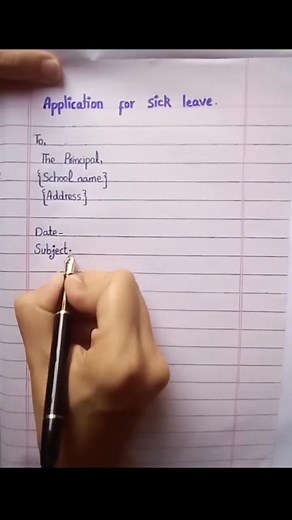 Application for sick leave.
To,
The Principal,
{School name}
{Address}
Date-
Subject: